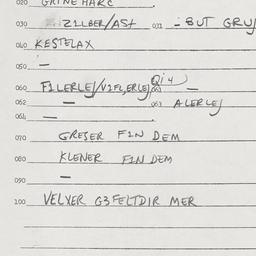 020 GRINE HARC .
030 ZILBER/AST 031 - BUT GRU
040 KESTELAX
050 —
060 FILERLEJ/VIFL,ERLEJ Qi4 —
062 — 063 ALERLEJ
064 —
070 GRESER FIN DEM
080 KLENER FIN DEM
090 —
100 VELXER G3FELTDIR MER